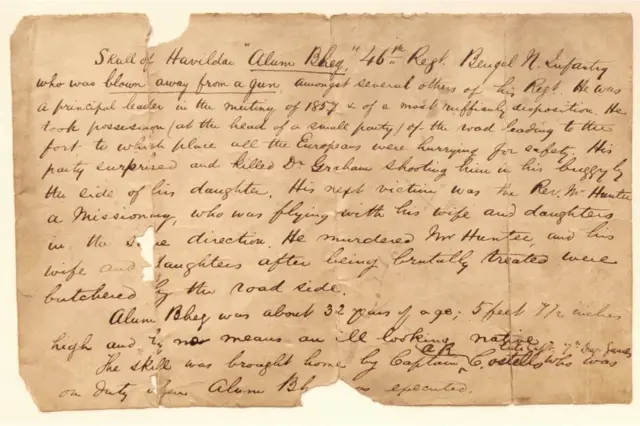 Skull of Havildar "Alum Bheg," 46th Regt. Bengal N. Infantry
who was blown away from a gun, amongst several others of his Regt. He was
a principal leader in the mutiny of 1857 & of a most ruffianly disposition. He
took possession (at the head of a small party) of the road leading to the
fort to which place all the Europeans were hurrying for safety. His
party surprised and killed Dr. Graham shooting him in his buggy by
the side of his daughter. His next victim was the Rev. Mr. Hunter
a Missionary, who was flying with his wife and daughters
in the same direction. He murdered Mr Hunter, and his
wife and daughters after being brutally treated were
butchered by the road side.
Alum Bheg was about 32 years of age; 5 feet 7 1/2 inches
high and by no means an ill looking native.
The skull was brought home by Captain Costello who was
on duty when Alum Bh as executed.